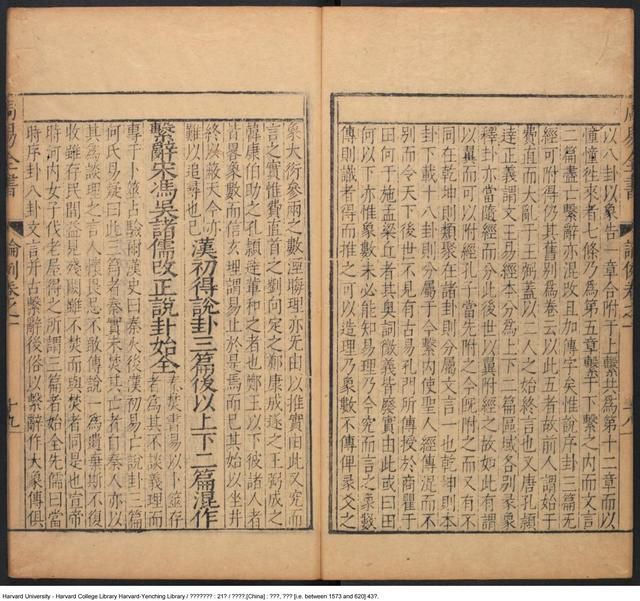 以八卦以象告一章合附于上繫共爲第十二章而以
憧憧徃來者七條乃爲第五章繫于下繫之内而文言
二篇盡亡繫辭亦混攺且加傳字矣惟說序卦三篇无
經可附得仍其舊别爲卷云以此五者故前人謂始于
費直而大亂于王弼蓋以二人之始終言也又唐孔頴
達正義謂文王易經本分爲上下二篇區域各别彖象
釋卦亦當隨經而分此後世以翼附經之故如此有謂
以翼而可以附經孔子當先附之今旣附之而又有不
同在乾坤則類聚在諸卦則分屬文言一也乾坤則本
卦下載十八卦則分屬于今繫内使聖人經傳混而不
别而令天下後世不見有古易孔門所傳授於商瞿于
田何于施孟梁丘者其奥詞微義皆廢實由此或曰田
何以下亦惟象數未必能知易理乃今究而言之象數
傳則識者得而推之可以造理乃象數不傳俾彖爻之
象大衍參兩之數湮晦理亦无由以推實由此又究而
言之實惟費直首之劉向定之鄭康成遂之王弼成之
韓康伯助之孔頴達葷种之者也鄭王以下彼諸人者
昔畧象數而信玄理謂易止於是焉而已其始以坐井
終以蔽天今亦
難以追尋也已
漢初得說卦三篇後以上下二篇混作
繫辭宋馮吳諸儒改正說卦始全
秦焚書易以卜筮存
者爲其不談義理而
專于卜筮占驗爾漢史曰秦火後漢初易亡說卦三篇
何氏易疑曰此三篇者秦實未焚其亡者自秦人亦以
其爲談理之言人懷畏忌不敢傳說爲遺棄斯不復
收雖存民間盖見殘闕雖不焚而與焚者同是也宣帝
時河内女子伐老屋得之所謂三篇者始全先儒曰當
時序卦八卦文言并古繫辭後俗以繫辭作大彖傳俱
周易全書
論例卷之一
十九